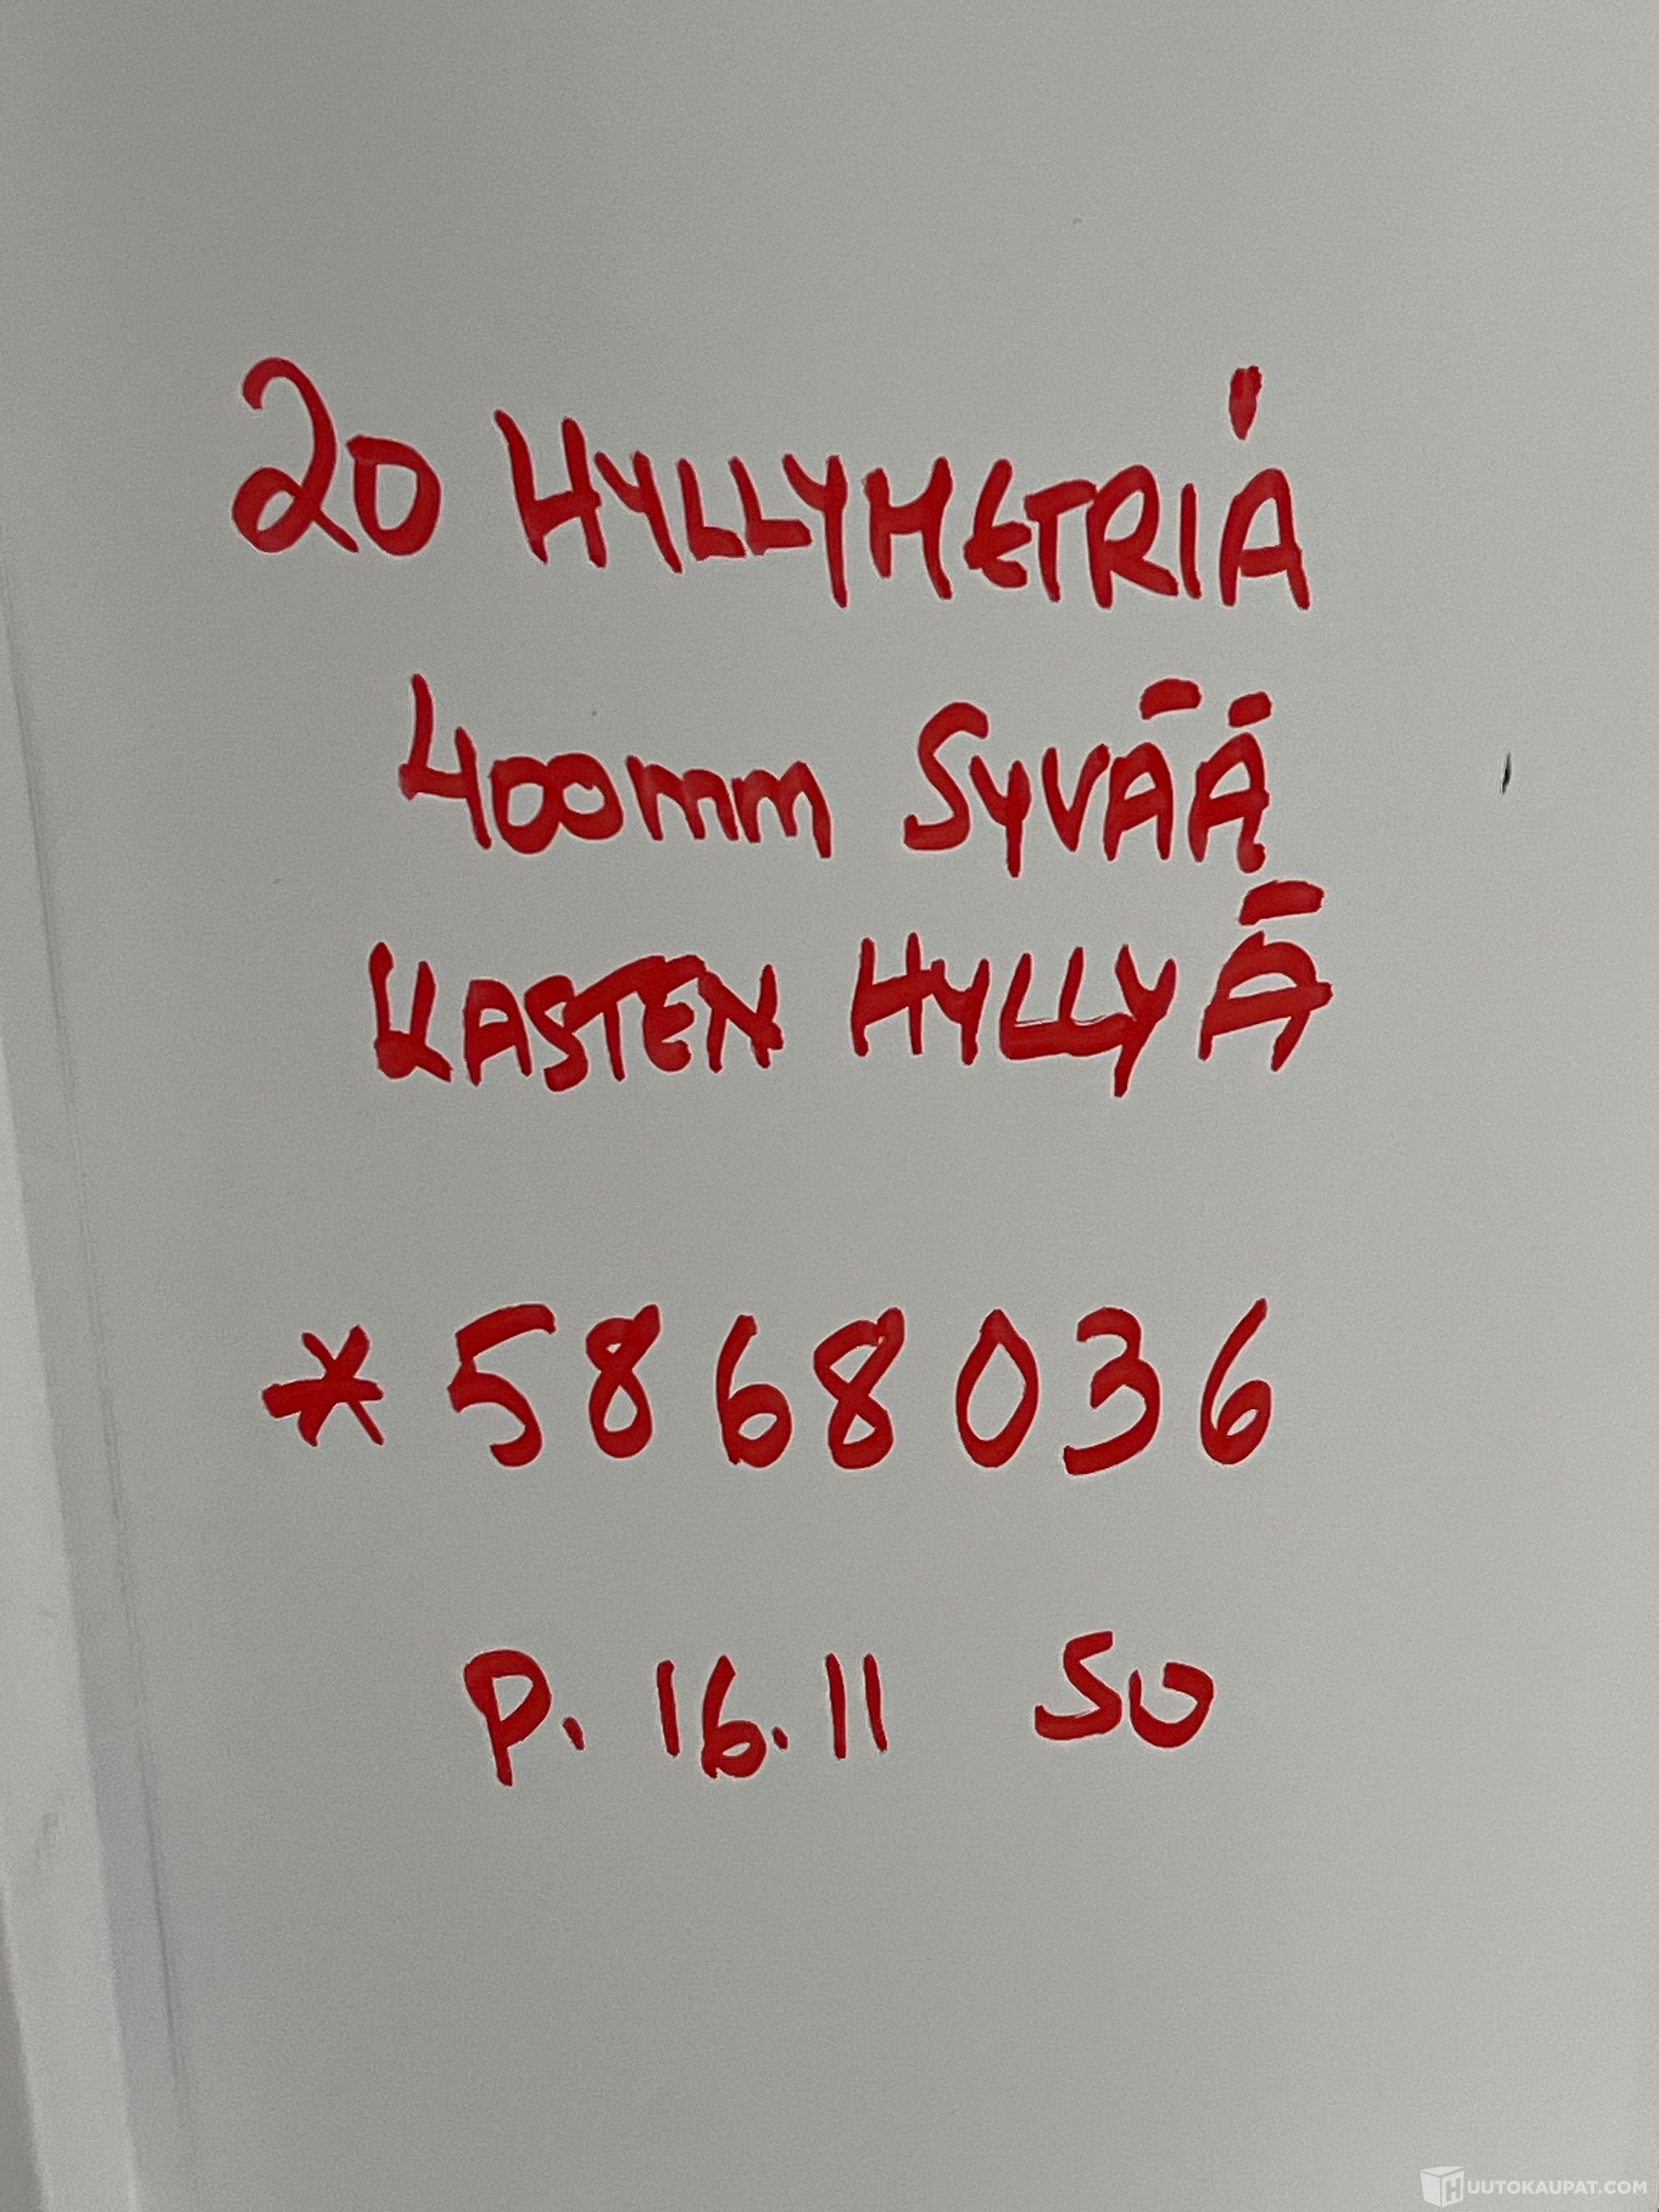 20 HYLLYMETRIÄ
400mm SYVÄÄ
KASTEN HYLLYÄ
*5868036
P. 16.11 SO
HUUTOKAUPAT.COM